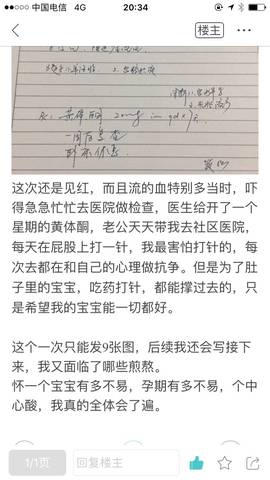 中国电信 4G 20:34
楼主
黄体酮 20mg im qd×7天
一周后复查
卧床休息
这次还是见红，而且流的血特别多当时，吓
得急急忙忙去医院做检查，医生给开了一个
星期的黄体酮，老公天天带我去社区医院，
每天在屁股上打一针，我最害怕打针的，每
次去都在和自己的心理做抗争。但是为了肚
子里的宝宝，吃药打针，都能撑过去的，只
是希望我的宝宝能一切都好。
这个一次只能发9张图，后续我还会写接下
来，我又面临了哪些煎熬。
怀一个宝宝有多不易，孕期有多不易，个中
心酸，我真的全体会了遍。
1/1页
回复楼主